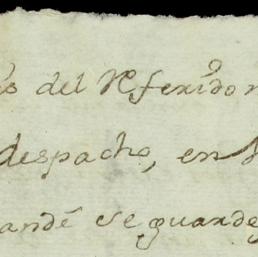 del Rferido
despacho, en
mandé se guarde